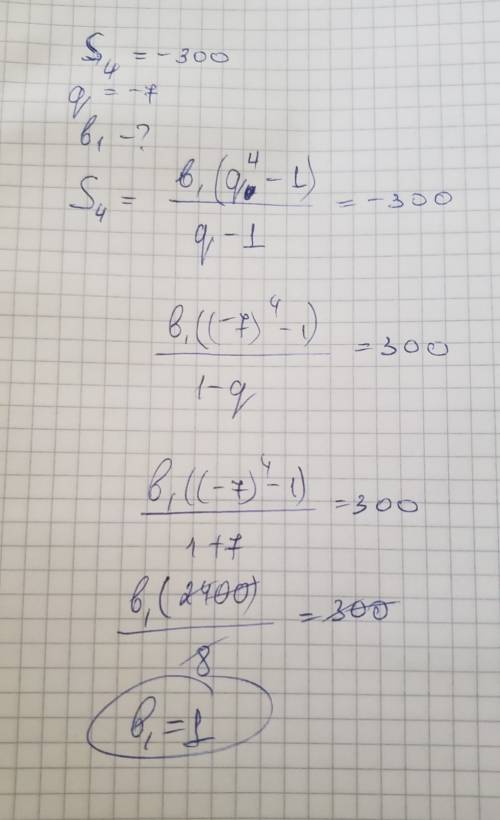 S₄ = -300
q = -7
b₁ - ?
S₄ = b₁(q⁴ - 1) / (q - 1) = -300
b₁((-7)⁴ - 1) / (1 - q) = 300
b₁((-7)⁴ - 1) / (1 + 7) = 300
b₁(2400) / 8 = 300
b₁ = 1